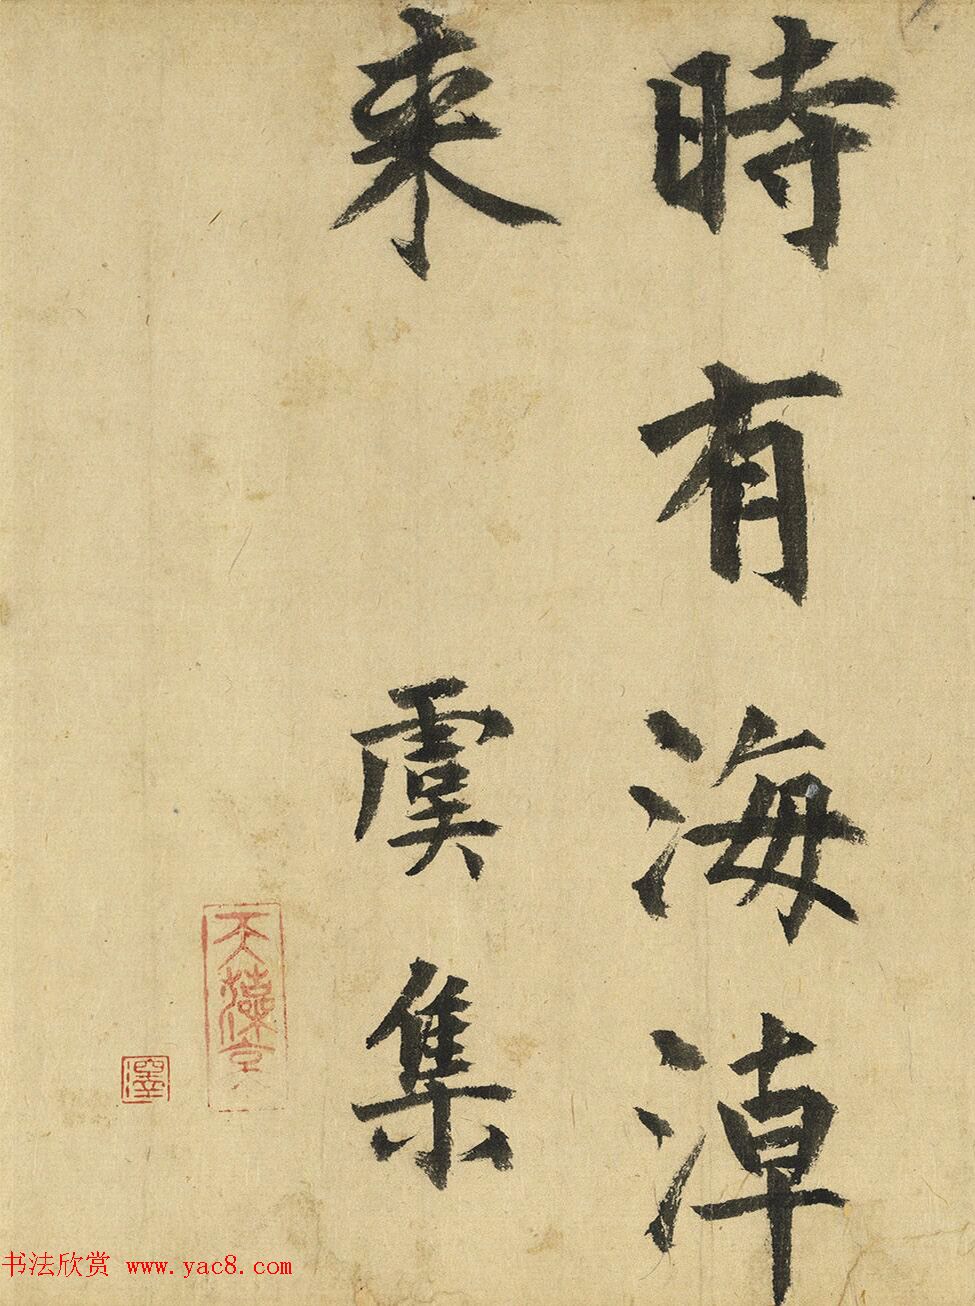 時有海淖
来 虞集
澤
书法欣赏 www.yac8.com